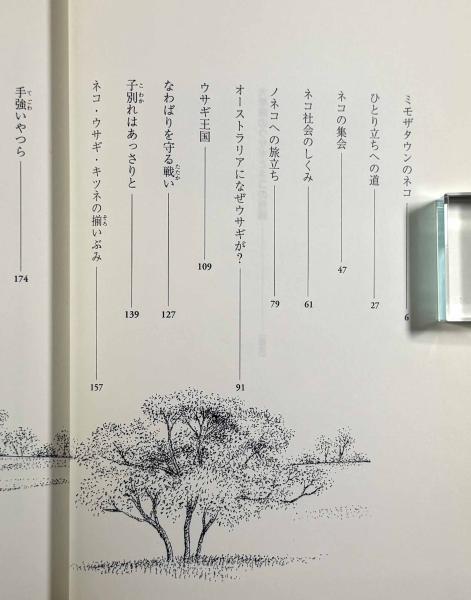 ミモザタウンのネコ 6
ひとり立ちへの道 27
ネコの集会 47
ネコ社会のしくみ 61
ノネコへの旅立ち 79
オーストラリアになぜウサギが? 91
ウサギ王国 109
なわばりを守る戦い 127
子別れはあっさりと 139
ネコ・ウサギ・キツネの揃いぶみ 157
手強いやつら 174